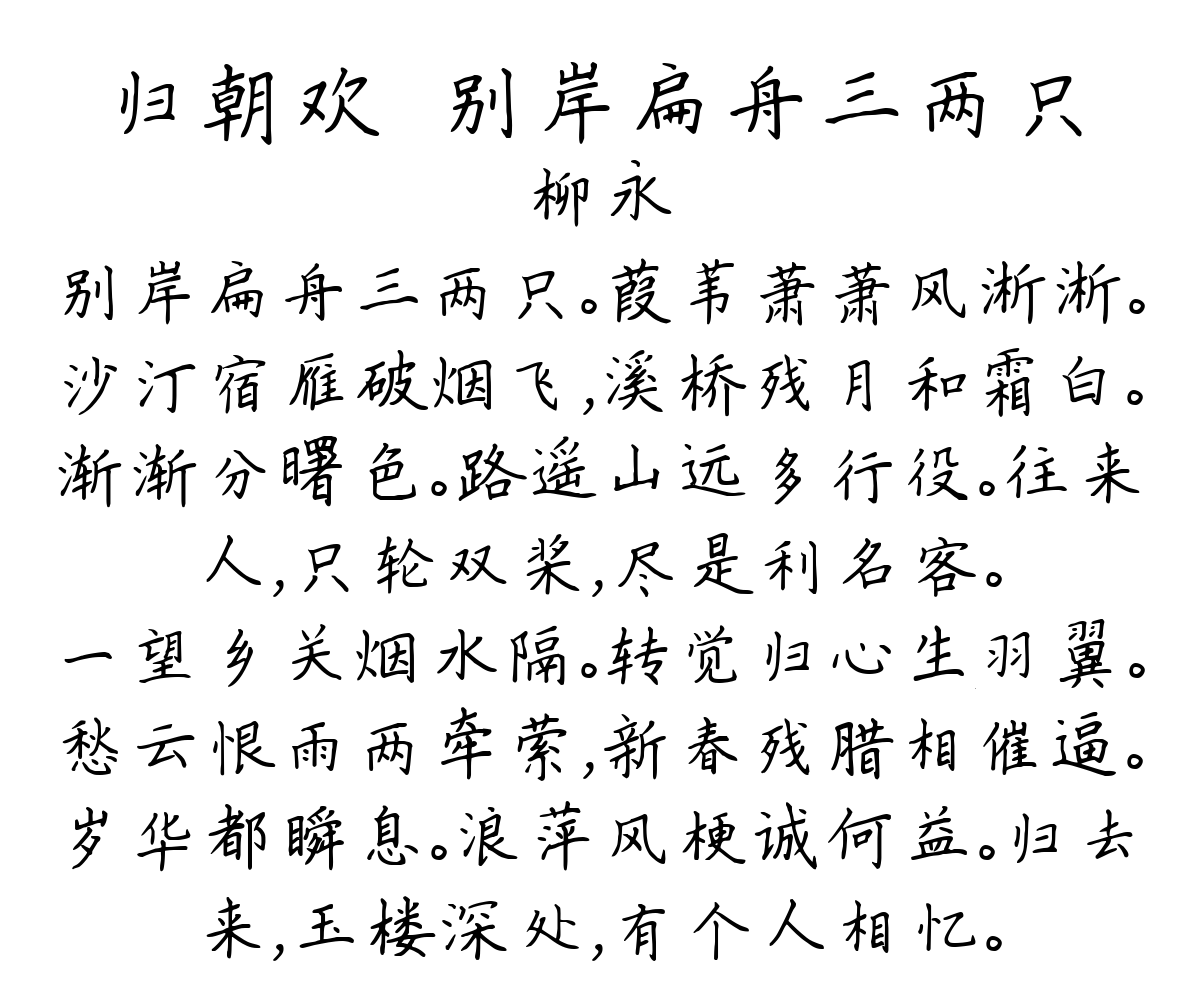 归朝欢 别岸扁舟三两只
柳永
别岸扁舟三两只。葭苇萧萧风淅淅。
沙汀宿雁破烟飞,溪桥残月和霜白。
渐渐分曙色。路遥山远多行役。往来
人,只轮双桨,尽是利名客。
一望乡关烟水隔。转觉归心生羽翼。
愁云恨雨两牵萦,新春残腊相催逼。
岁华都瞬息。浪萍风梗诚何益。归去
来,玉楼深处,有个人相忆。